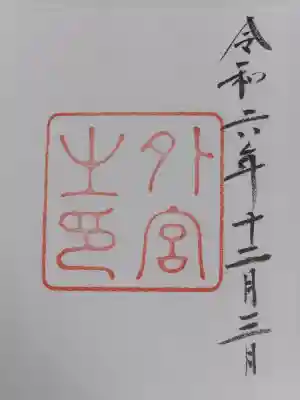 令和六年十二月三日
外宮
之印